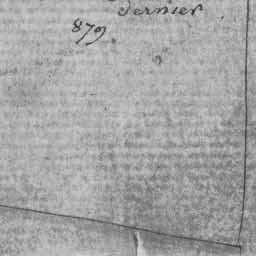 dernier
879.